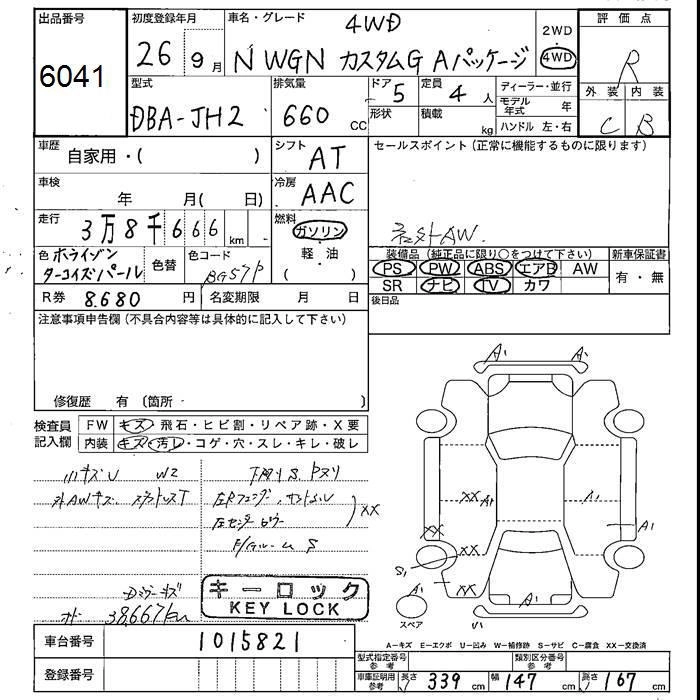 出品番号
6041
初度登録年月
26 9月
車名・グレード
4WD
N WGN カスタムG Aパッケージ
2WD
4WD
評価点
R
外装 内装
C B
型式
DBA-JH2
排気量
660 CC
ドア 5
形状
定員 4 人
積載 kg
ディーラー・並行
モデル年式 年
ハンドル 左・右
車歴
自家用・( )
シフト
AT
セールスポイント(正常に機能するものに限ります)
社外AW.
車検
年 月( 日)
冷房
AAC
走行
3万8千666 km
燃料
ガソリン
軽・油
( )
色 ホライゾンターコイズパール
色替
色コード
BG57P
装備品(純正品に限り○をつけて下さい)
PS PW ABS エアB AW
SR ナビ TV カワ
新車保証書
有・無
R券 8.680 円
名変期限 月 日
後日品
注意事項申告欄(不具合内容等は具体的に記入して下さい)
修復歴 有 〔箇所 〕
検査員記入欄
FW キズ・飛石・ヒビ割・リペア跡・X要
内装 キズ・汚レ・コゲ・穴・スレ・キレ・破レ
小キズU W2
外AWキズ.
XX
キーロック
KEY LOCK
38,667km
車台番号 1015821
登録番号
A1 A1
XX A1 A1
XX A1
S1 XX
XX
A1
スペア
A-キズ E-エクボ U-凹み W-補修跡 S-サビ C-腐食 XX-交換済
型式指定番号 参考
類別区分番号 参考
車庫証明用 参考
長さ 339 cm 幅 147 cm 高さ 167 cm